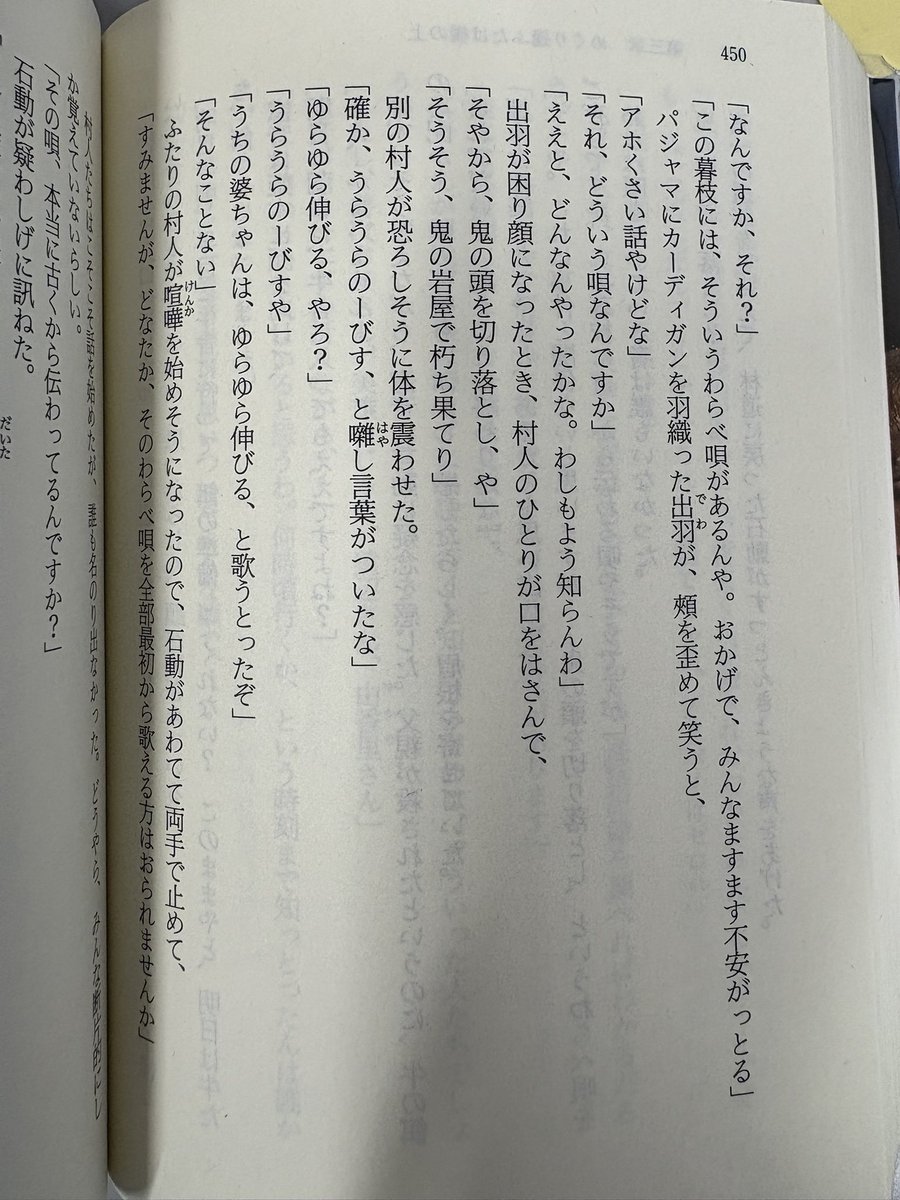 450
「なんですか、それ？」
「この暮枝には、そういうわらべ唄があるんや。おかげで、みんなますます不安がっとる」
パジャマにカーディガンを羽織った出羽が、頰を歪めて笑うと、
「アホくさい話やけどな」
「それ、どういう唄なんですか」
「ええと、どんなんやったかな。わしもよう知らんわ」
出羽が困り顔になったとき、村人のひとりが口をはさんで、
「そやから、鬼の頭を切り落とし、や」
「そうそう、鬼の岩屋で朽ち果てり」
別の村人が恐ろしそうに体を震わせた。
「確か、うらうらのーびす、と囃し言葉がついたな」
「ゆらゆら伸びる、やろ？」
「うらうらのーびすや」
「うちの婆ちゃんは、ゆらゆら伸びる、と歌うとったぞ」
「そんなことない」
ふたりの村人が喧嘩を始めそうになったので、石動があわてて両手で止めて、
「すみませんが、どなたか、そのわらべ唄を全部最初から歌える方はおられませんか」
村人たちはこそこそ話を始めたが、誰も名のり出なかった。どうやら、みんな断片的にし
か覚えていないらしい。
「その唄、本当に古くから伝わってるんですか？」
石動が疑わしげに訊ねた。